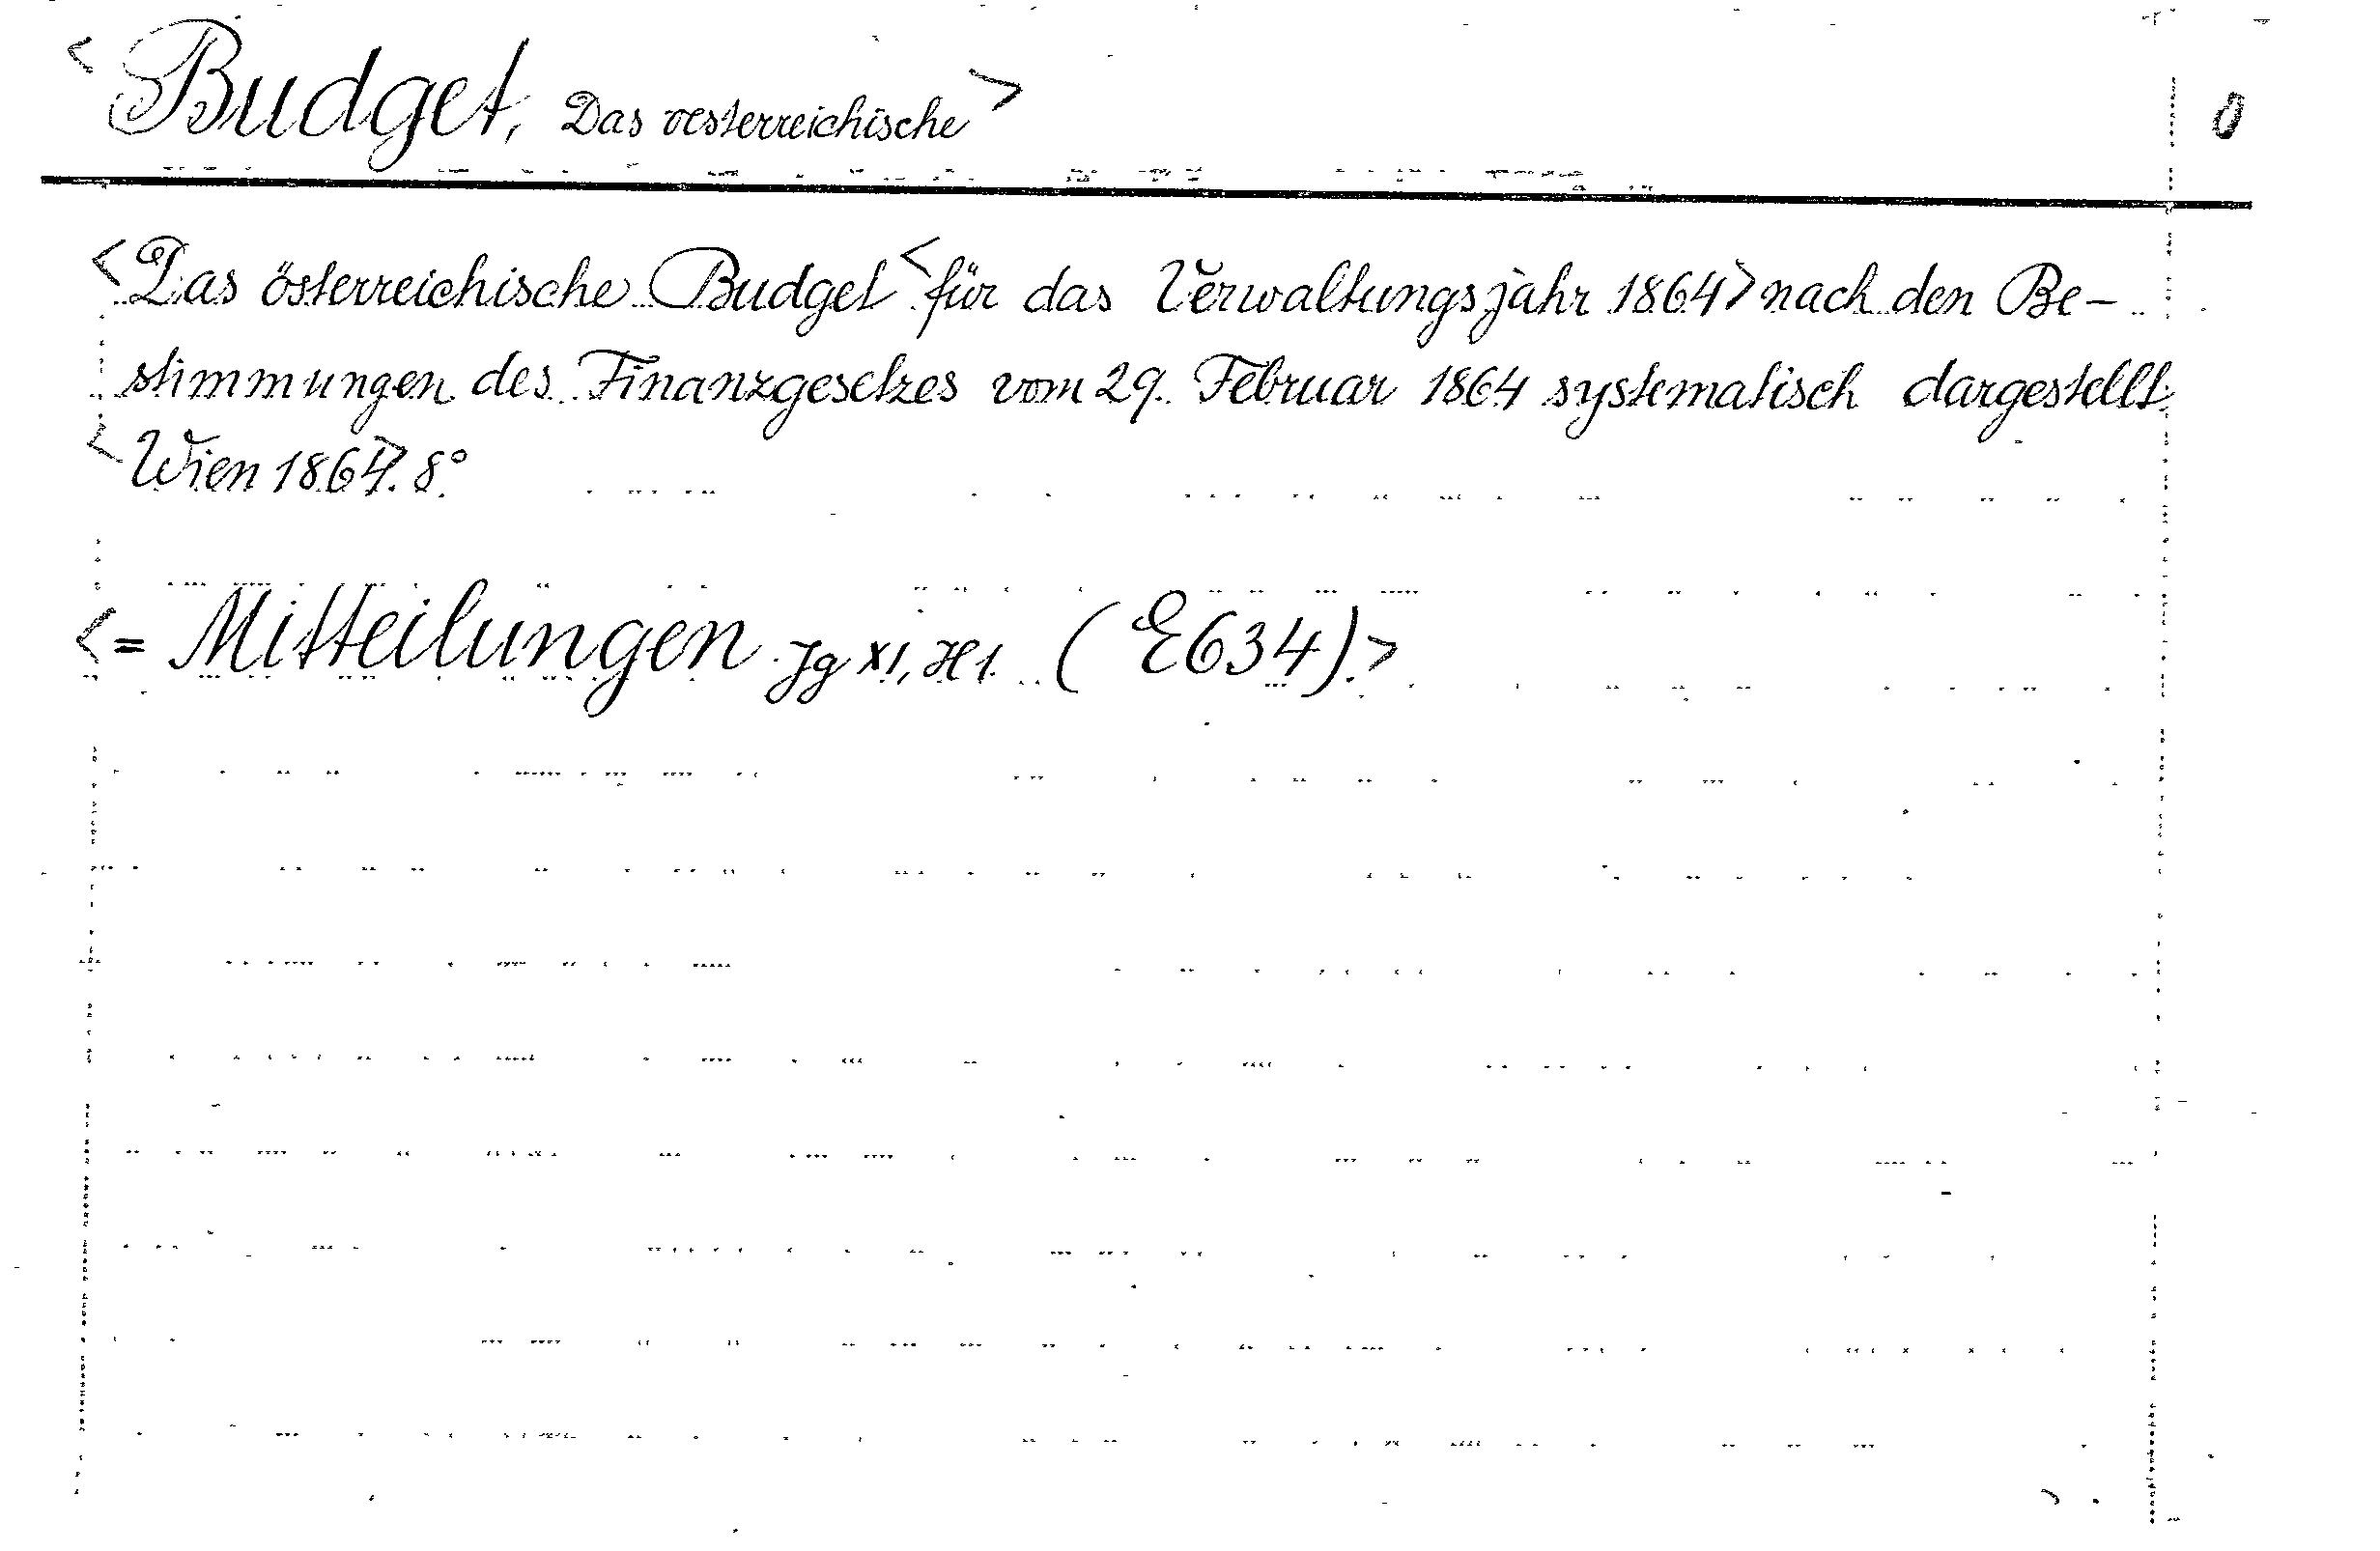 <Budget, Das oesterreichische> 0
<Das österreichische Budget <für das Verwaltungsjahr 1864> nach den Be-
stimmungen des Finanzgesetzes vom 29. Februar 1864 systematisch dargestellt.
<Wien 1864>. 8°.
<= Mitteilungen Jg XI, H 1. (E634).>